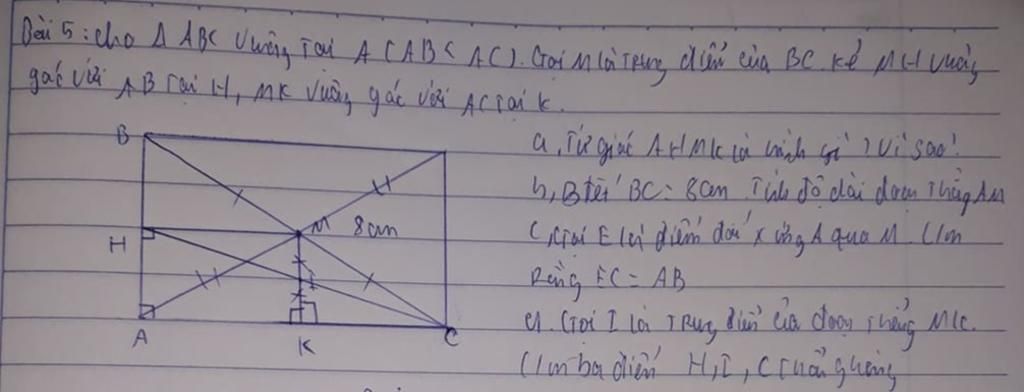 Bài 5: cho Δ ABC vuông Tại A (AB < AC). Gọi M là Trung điểm của BC. Kẻ MH vuông
góc với AB Tại H, MK vuông góc với AC Tại K.
a, Tứ giác AHMK là hình gì ? Vì sao?
b, Biết BC = 8cm Tính độ dài đoạn Thẳng AM
C, Gọi E là điểm đối xứng A qua M. C/m
Rằng EC = AB
d. Gọi I là Trung điểm của đoạn Thẳng MK.
C/m ba điểm H, I, C Thẳng hàng
B
M 8cm
H
I
A
K
C